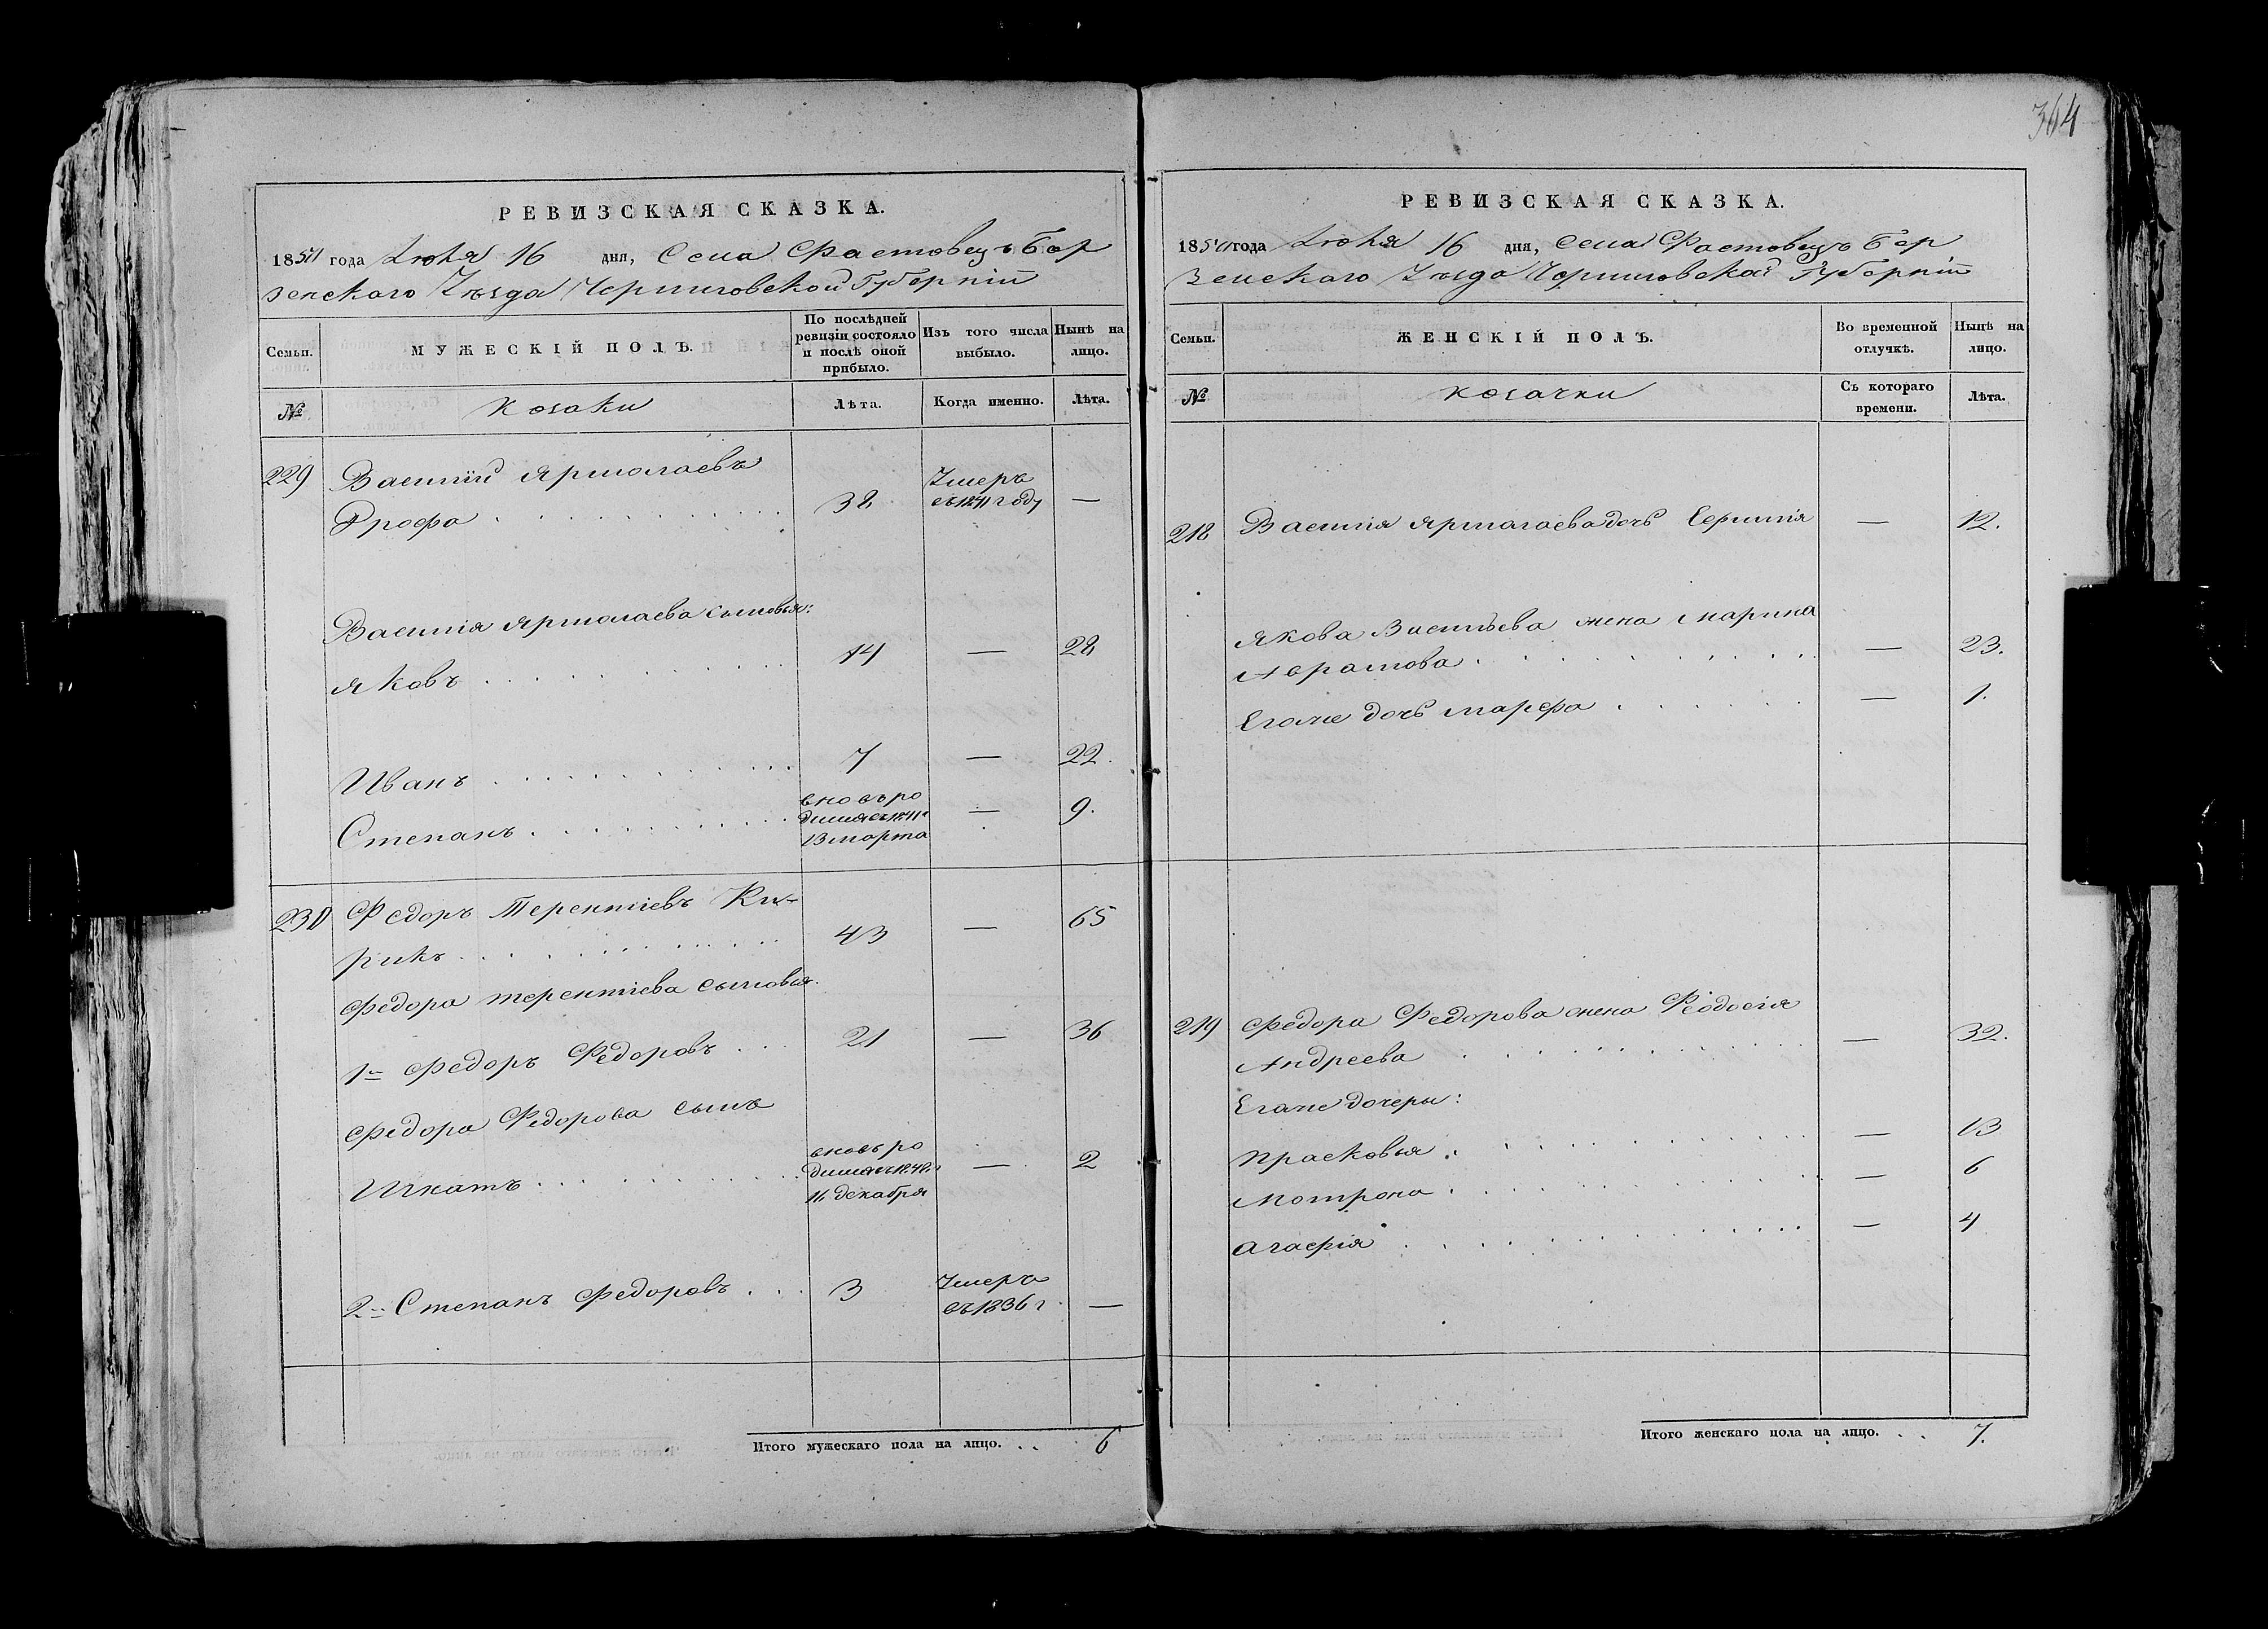 364
РЕВИЗСКАЯ СКАЗКА.
1850 года Іюня 16 дня, Села Фастовецъ Бор
зенскаго Уѣзда Черниговской Губерніи
Семьи.
МУЖЕСКІЙ ПОЛЪ.
По послѣдней ревизіи состояло и послѣ оной прибыло.
Изъ того числа выбыло.
Нынѣ на лицо.
№
Козаки
Лѣта.
Когда именно.
Лѣта.
229 Василій Ярмолаевъ
Дрофа 38 Умеръ въ 1841 году —
Василія Ярмолаева сыновья:
Яковъ 14 — 28
Иванъ 7 — 22.
Степанъ вновь ро
дился въ 1841 г
13 марта — 9.
230 Федоръ Терентіевъ Ки-
рикъ 43 — 65
Федора Терентіева сыновья.
1й Федоръ Федоровъ 21 — 36
Федора Федорова сынъ
Игнатъ вновь ро
дился въ 1848 г
16 декабря — 2
2й Степанъ Федоровъ 3 Умеръ
въ 1836 г. —
Итого мужескаго пола на лицо. 6
РЕВИЗСКАЯ СКАЗКА.
1850 года Іюня 16 дня, Села Фастовецъ Бор
зенскаго Уѣзда Черниговской Губерніи
Семьи.
ЖЕНСКІЙ ПОЛЪ.
Во временной отлучкѣ.
Нынѣ на лицо.
№
Козачки
Съ котораго времени.
Лѣта.
218 Василія Ярмолаева дочь — 12.
Якова Васильева жена Марина
Аврамова — 23.
Егоже дочь Марфа — 1.
219 Федора Федорова жена Феодосія
Андреева — 32.
Егоже дочеры:
Прасковья — 13
Мотрона — 6
Агафія — 4
Итого женскаго пола на лицо. 7.